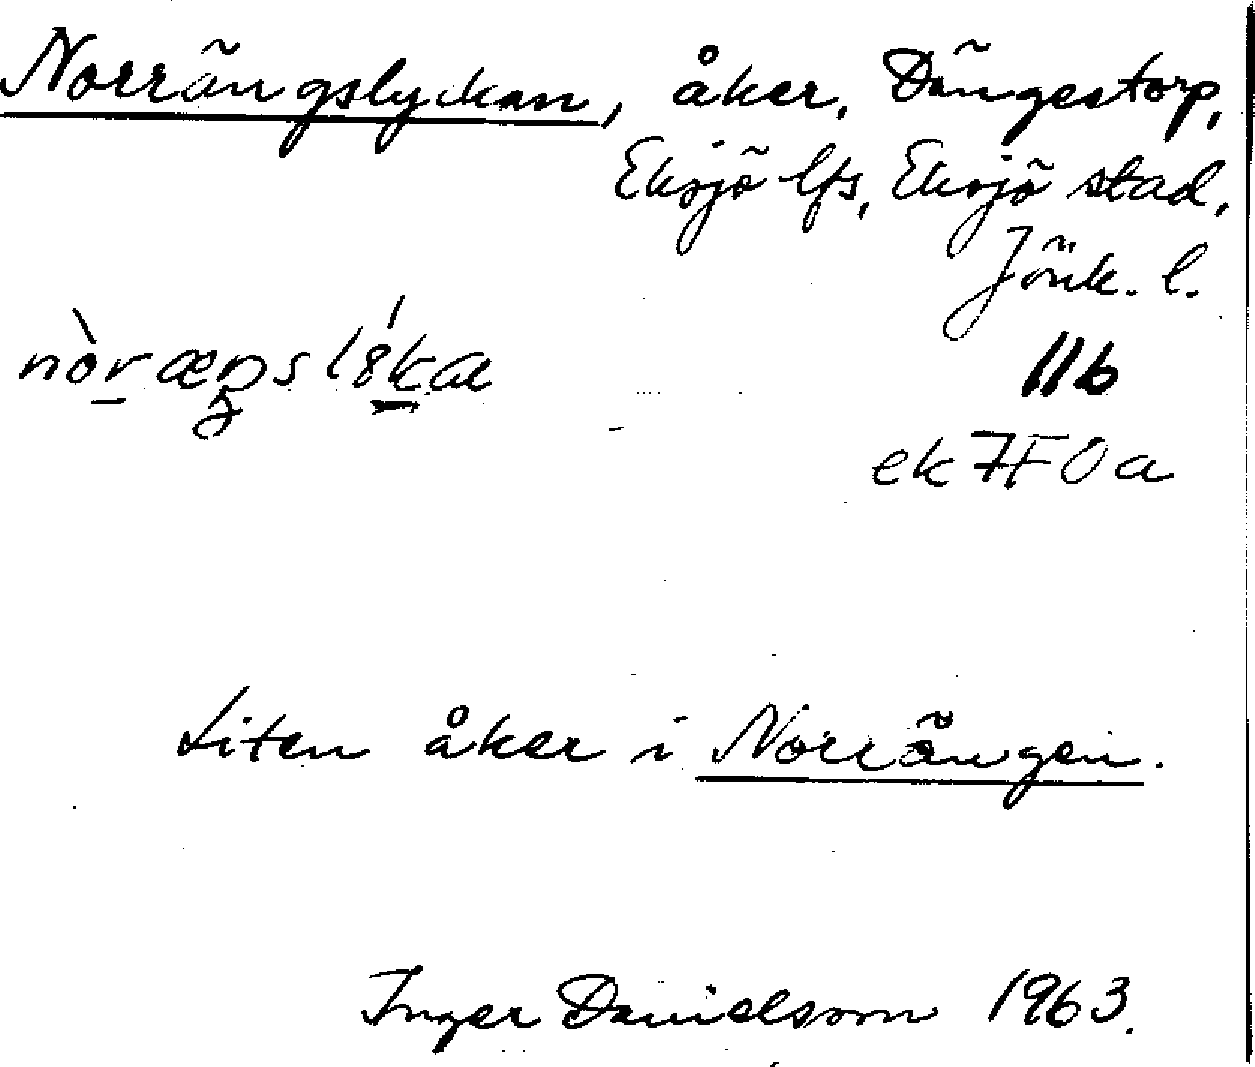 Norrängslyckan, åker, Dängestorp,
Eksjö lfs, Eksjö stad,
Jönk. l.
11b
ek 7F0a
Liten åker i Norrängen.
Inger Danielsson 1963.